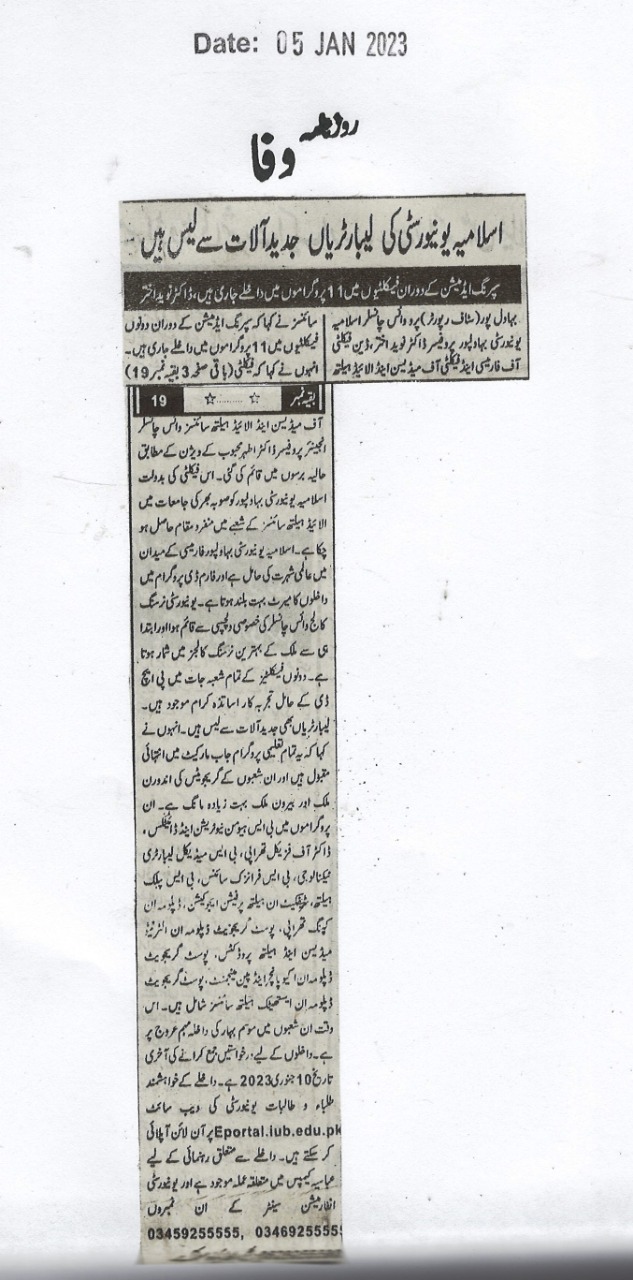 Date: 05 JAN 2023
روزنامہ
وفا
اسلامیہ یونیورسٹی کی لیبارٹریاں جدید آلات سے لیس ہیں
سپرنگ ایڈمیشن کے دوران فیکلٹیوں میں 11 پروگراموں میں داخلے جاری ہیں، ڈاکٹر نوید اختر
بہاول پور (سٹاف رپورٹر) پرو وائس چانسلر اسلامیہ
یونیورسٹی بہاولپور پروفیسر ڈاکٹر نوید اختر، ڈین فیکلٹی
آف فارمیسی اینڈ فیکلٹی آف میڈیسن اینڈ الائیڈ ہیلتھ
سائنسز نے کہا کہ سپرنگ ایڈمیشن کے دوران دونوں
فیکلٹیوں میں 11 پروگراموں میں داخلے جاری ہیں۔
انہوں نے کہا کہ فیکلٹی (باقی صفحہ 3 بقیہ نمبر 19)
بقیہ نمبر ☆..........☆ 19
آف میڈیسن اینڈ الائیڈ ہیلتھ سائنسز وائس چانسلر
انجینئر پروفیسر ڈاکٹر اطہر محبوب کے ویژن کے مطابق
حالیہ برسوں میں قائم کی گئی۔ اس فیکلٹی کی بدولت
اسلامیہ یونیورسٹی بہاولپور کو صوبہ بھر کی جامعات میں
الائیڈ ہیلتھ سائنسز کے شعبے میں منفرد مقام حاصل ہو
چکا ہے۔ اسلامیہ یونیورسٹی بہاولپور فارمیسی کے میدان
میں عالمی شہرت کی حامل ہے اور فارم ڈی پروگرام میں
داخلوں کا میرٹ بہت بلند ہوتا ہے۔ یونیورسٹی نرسنگ
کالج وائس چانسلر کی خصوصی دلچسپی سے قائم ہوا اور ابتدا
ہی سے ملک کے بہترین نرسنگ کالجز میں شمار ہوتا
ہے۔ دونوں فیکلٹیز کے تمام شعبہ جات میں پی ایچ
ڈی کے حامل تجربہ کار اساتذہ کرام موجود ہیں۔
لیبارٹریاں بھی جدید آلات سے لیس ہیں۔ انہوں نے
کہا کہ یہ تمام تعلیمی پروگرام جاب مارکیٹ میں انتہائی
مقبول ہیں اور ان شعبوں کے گریجویٹس کی اندورن
ملک اور بیرون ملک بہت زیادہ مانگ ہے۔ ان
پروگراموں میں بی ایس ہیومن نیوٹریشن اینڈ ڈائیٹکس،
ڈاکٹر آف فزیکل تھراپی، بی ایس میڈیکل لیبارٹری
ٹیکنالوجی، بی ایس فرانزک سائنس، بی ایس پبلک
ہیلتھ، سرٹیفکیٹ ان ہیلتھ پرفیشن ایجوکیشن، ڈپلومہ ان
کپنگ تھراپی، پوسٹ گریجویٹ ڈپلومہ ان الٹرنیٹو
میڈیسن اینڈ ہیلتھ پروڈکٹس، پوسٹ گریجویٹ
ڈپلومہ ان اکیوپانچر اینڈ پین مینجمنٹ، پوسٹ گریجویٹ
ڈپلومہ ان ایستھیٹک ہیلتھ سائنسز شامل ہیں۔ اس
وقت ان شعبوں میں موسم بہار کی داخلہ مہم عروج پر
ہے۔ داخلوں کے لیے، رخواستیں جمع کرانے کی آخری
تاریخ 10 جنوری 2023 ہے۔ داخلے کے خواہشمند
طلباء و طالبات یونیورسٹی کی ویب سائٹ
Eportal.iub.edu.pk پر آن لائن آپلائی
کر سکتے ہیں۔ داخلے سے متعلق رہنمائی کے لیے
عباسیہ کیمپس میں متعلقہ عملہ موجود ہے اور یونیورسٹی
انفارمیشن سینٹر کے ان نمبروں
03459255555, 03469255555